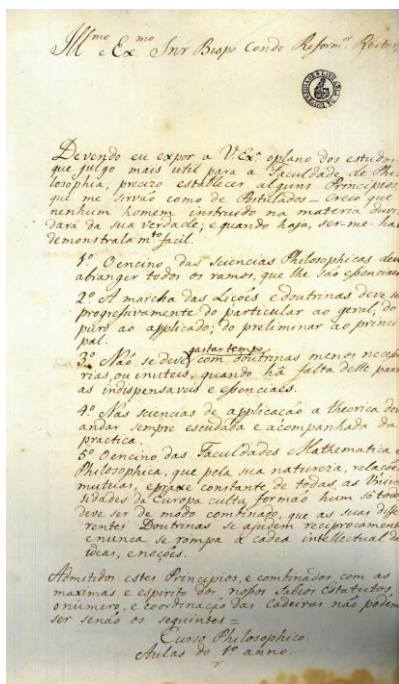 Ill.mo e Ex.mo Snr Bispo Conde Reform.or Reitor
Devendo eu expor a V. Ex.a o plano dos estudos
que julgo mais util para a Faculdade de Phi-
losophia, precizo establecer alguns Principios,
que me sirvão como de Postulados – Creio que
nenhum homem instruido na materia duvi-
dará da sua verdade; e quando haja, ser-me-ha
demonstrala m.to facil.
1.º O encino das sciencias Philosophicas deve
abranger todos os ramos, que lhe são essenciaes
2.º A marcha das Lições e doutrinas deve ser
progressivamente do particular ao geral, do
puro ao applicado; do preliminar ao princi-
pal.
gastar tempo
3.º Não se deve com doutrinas menos necessa-
rias, ou inuteis, quando há falta delle para
as indispensaveis e essenciaes.
4.º Nas sciencias de applicação a theorica deve
andar sempre escudada e acompanhada da
practica.
5.º O encino das Faculdades Mathematica e
Philosophica, que pela sua natureza, relações
mutuas, e praxe constante de todas as Univer-
sidades da Europa culta, formão hum só todo,
deve ser de modo combinado, que as suas diffe-
rentes Doutrinas se ajudem reciprocamente
e nunca se rompa a cadea intellectual de
ideas, e noções.
Admitidos estes Principios, e combinados com as
maximas e espirito dos nossos sabios Estatutos,
o numero, e coordinação das Cadeiras não podem
ser senão os seguintes =
Curso Philosophico.
Aulas do 1.º anno.